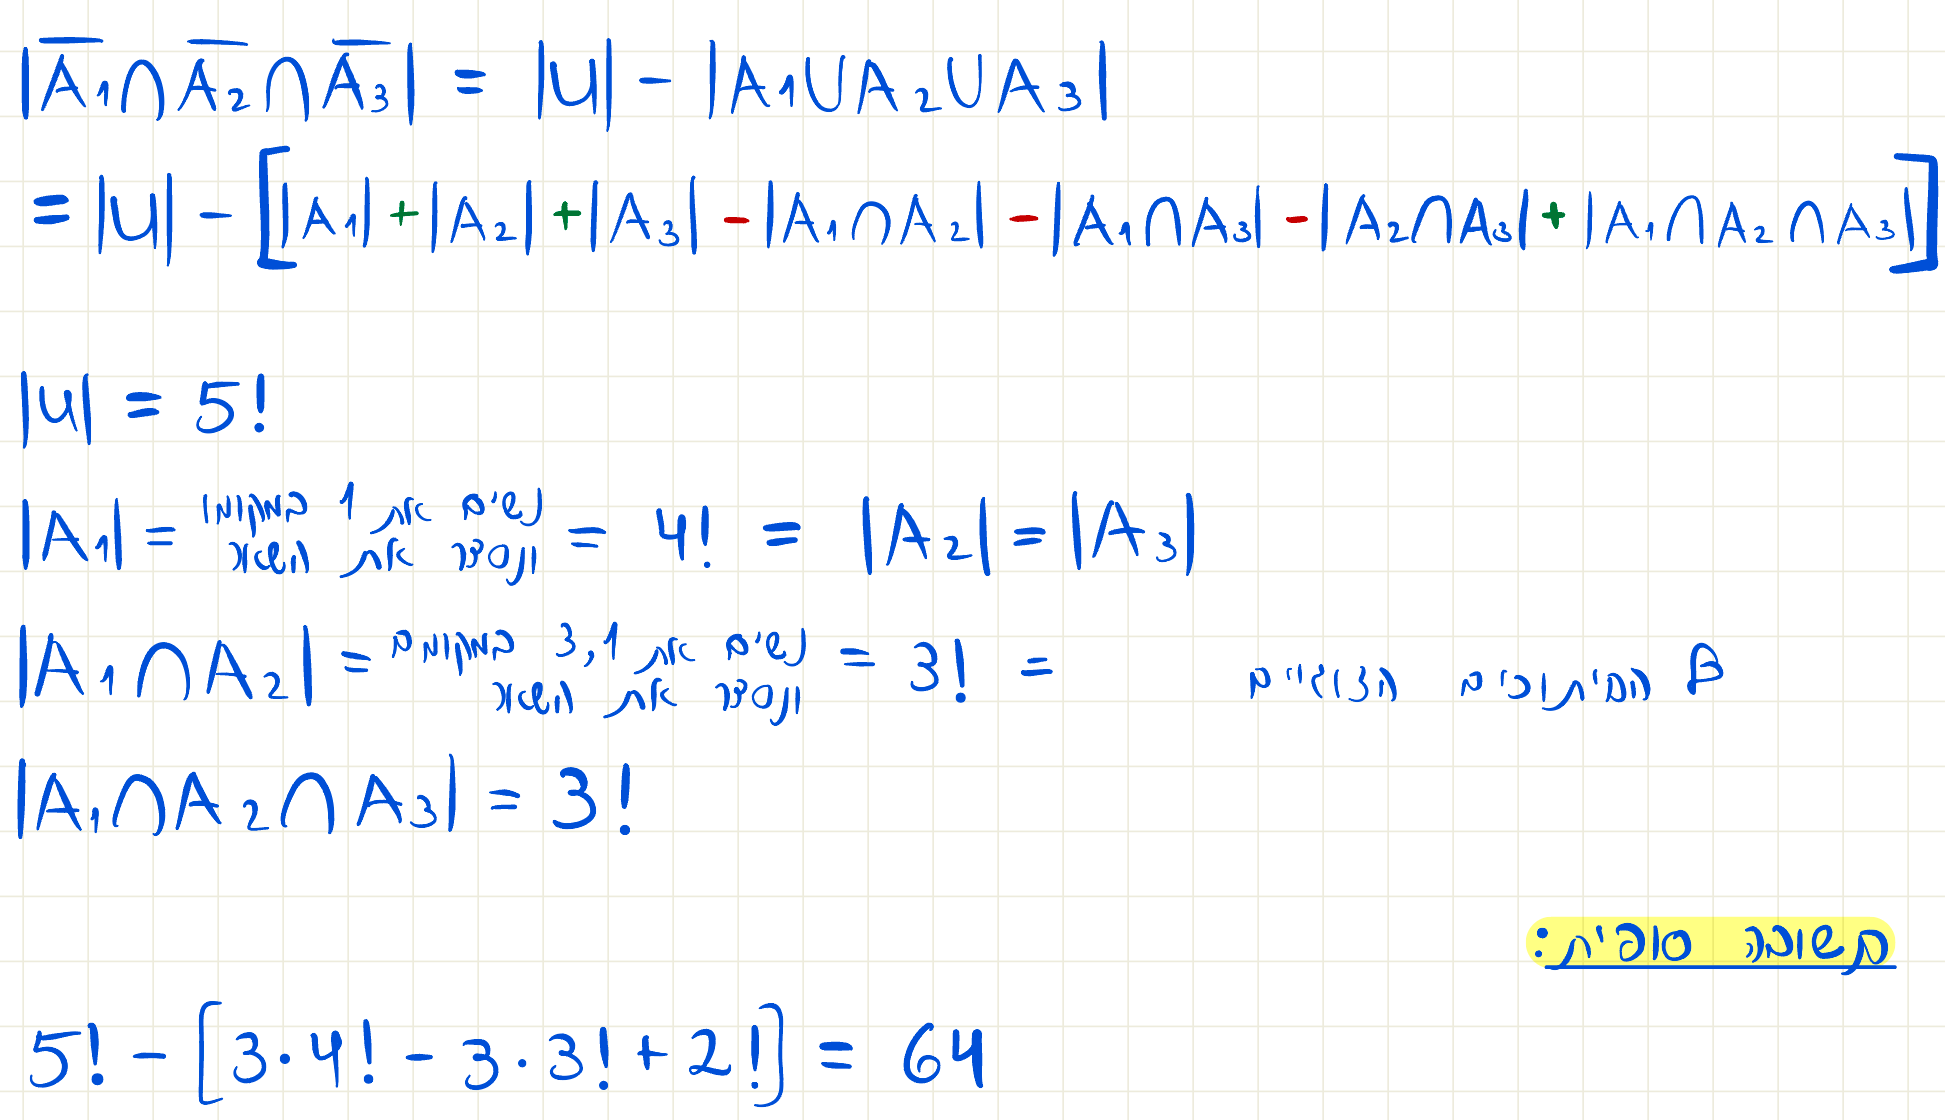 |A̅₁∩A̅₂∩A̅₃| = |U| - |A₁∪A₂∪A₃|
= |U| - [|A₁|+|A₂|+|A₃|-|A₁∩A₂|-|A₁∩A₃|-|A₂∩A₃|+|A₁∩A₂∩A₃|]
|U| = 5!
|A₁| = נשים את 1 במקומו ונסדר את השאר = 4! = |A₂| = |A₃|
|A₁∩A₂| = נשים את 3,1 במקומם ונסדר את השאר = 3! = החיתוכים הזוגיים
|A₁∩A₂∩A₃| = 3!
תשובה סופית:
5! - [3·4! - 3·3! + 2!] = 64